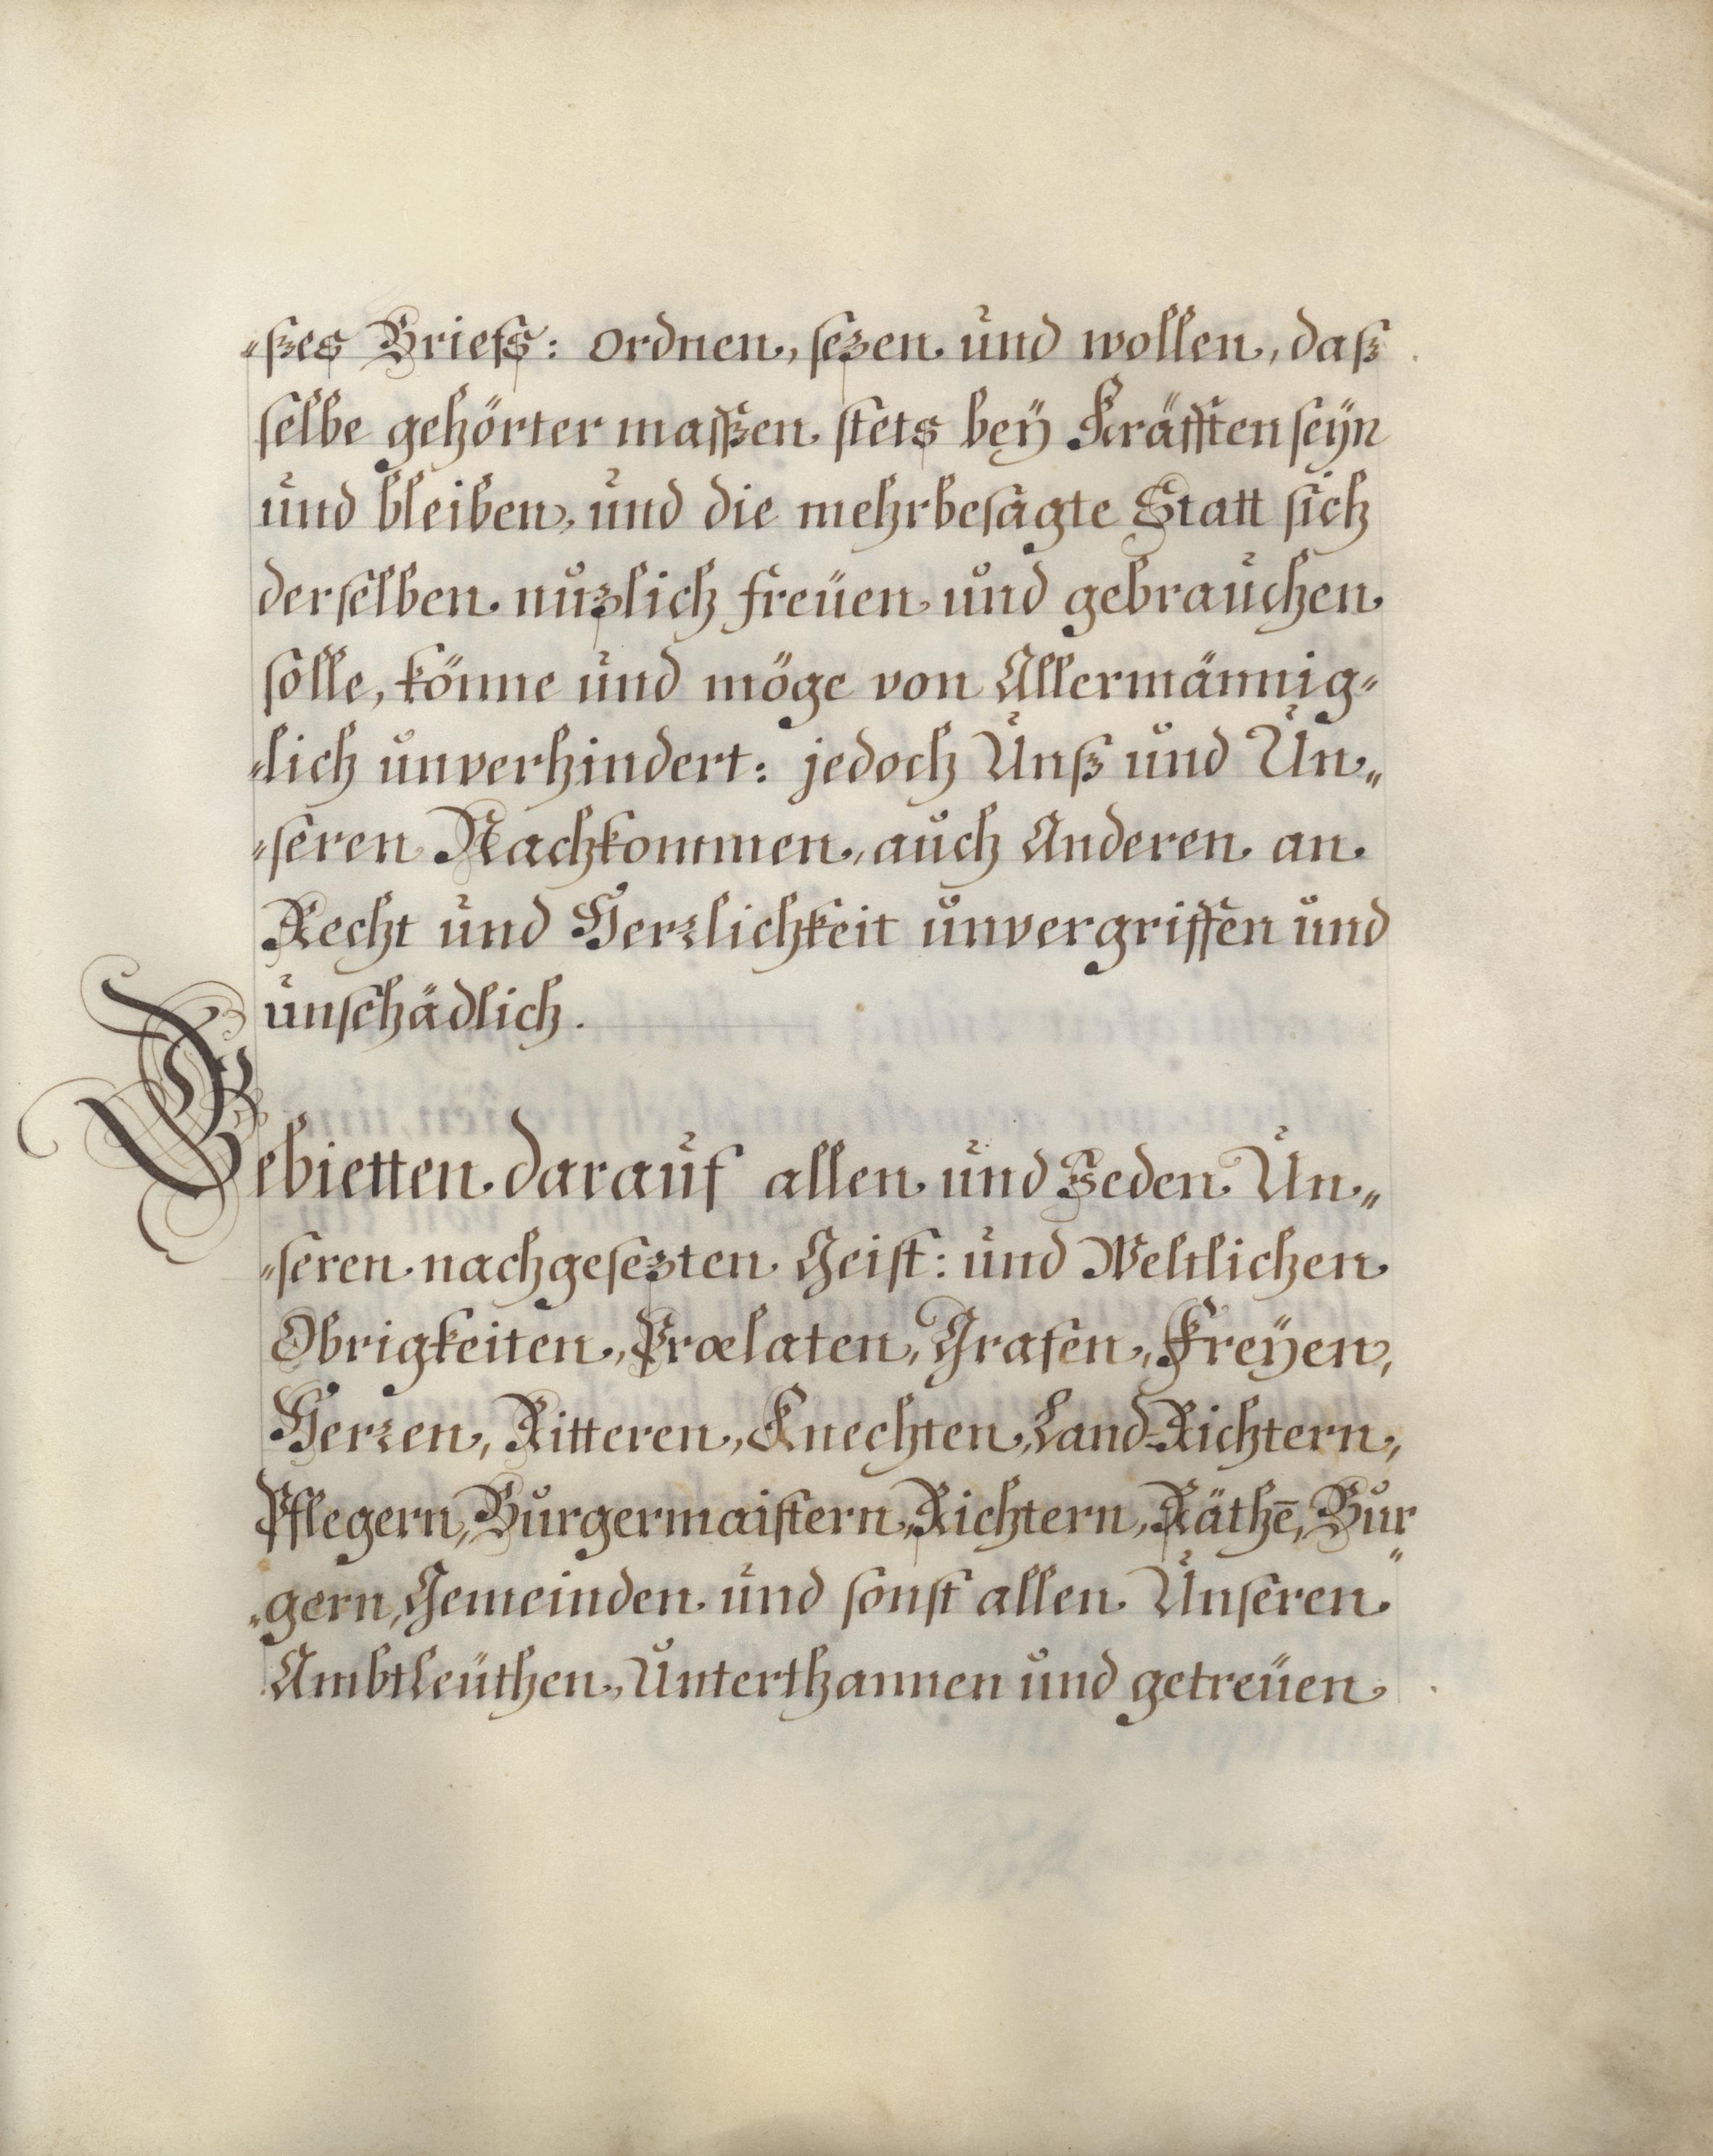 „ßes Briefs: ordnen, sezen und wollen, daß
selbe gehörter maßen stets bey Kräfften seÿn
und bleiben, und die mehrbesagte Statt sich
derselben nuzlich freüen und gebrauchen
solle, könne und möge von Allermännig„
„lich unverhindert: jedoch Unß und Un„
„seren Nachkommen, auch Anderen an
Recht und Herrlichkeit unvergriffen und
unschädlich.
Gebietten darauf allen und Jeden Un„
„seren nachgesezten Geist: und Weltlichen
Obrigkeiten, Prælaten, Grafen, Freÿen,
Herren, Ritteren, Knechten, Land-Richtern,
Pflegern, Burgermaistern, Richtern, Räthē, Bur„
„gern, Gemeinden und sonst allen Unseren
Ambtleüthen, Unterthannen und getreüen